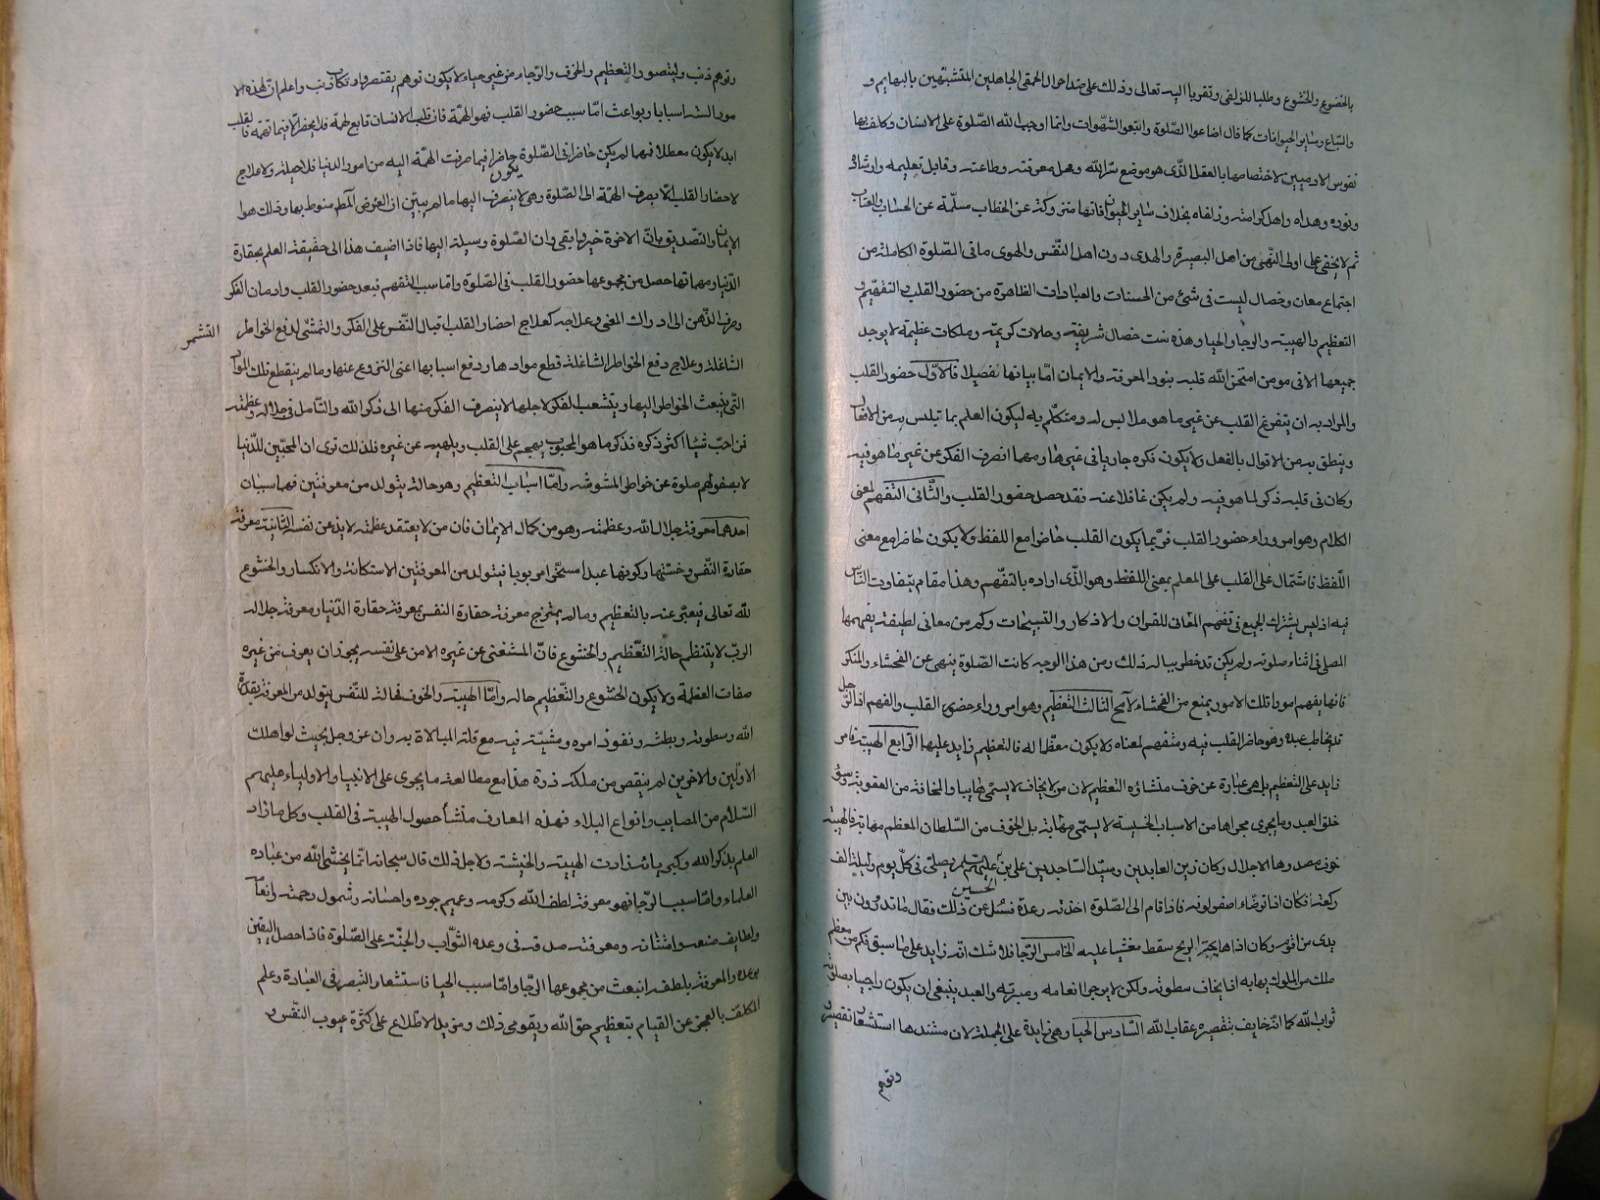 بالخضوع والخشوع وطلبا للزلفى وتقربا اليه تعالى وذلك على ضد احوال الحمقى الجاهلين المتشبهين بالبهايم و
والسباع وساير الحيوانات كما قال اضاعوا الصلوة واتبعوا الشهوات وانما اوجب الله الصلوة على الانسان وكلف بها
نفوس الادميين لاختصامها بالعقل الذى هو موضع سر الله ومحل معرفته وطاعته وقابل تعليمه وارشاد
ونوره وهداه واهل كرامته وزلفاه بخلاف ساير الحيوان فانها متروكة عن الخطاب مسلمة عن الحساب والعقاب
ثم لا يخفى على اولى النهى من اهل البصيرة والهدى دون اهل النفس والهوى ما فى الصلوة الكاملة من
اجتماع معان وخصال ليست فى شئ من الحسنات والعبادات الظاهرة من حضور القلب والتفهم و
التعظيم والهيبة والرجا والحيا وهذه ست خصال شريفة وحالات كريمة وملكات عظيمة لا يوجد
جميعها الا فى مومن امتحن الله قلبه بنور المعرفة والايمان اما بيانها تفصيلا فالاول حضور القلب
والمراد به ان يتفرغ القلب عن غير ما هو ملابس له ومتكلم به ليكون العلم بما تيلبس به من الافعال
وينطق به من الاقوال بالفعل ولا يكون فكره جاريا فى غيرها ومهما انصرف الفكر عن غير ما هو فيه
وكان فى قلبه ذكر لما هو فيه ولم يكن غافلا عنه فقد حصل حضور القلب والثانى التفهم لمعنى
الكلام وهو امر وراء حضور القلب فربما يكون القلب حاضرا مع اللفظ ولا يكون حاضرا مع معنى
اللفظ فاشتمال على القلب على العلم بمعنى اللفظ وهو الذى اراده بالتفهم وهذا مقام يتفاوت الناس
فيه اذ ليس يشترك الجميع فى تفهم المعانى للقران والاذكار والتسبيحات وكم من معانى لطيفة يفهمها
المصلى فى اثناء صلوته ولم يكن قد خطر بباله ذلك ومن هذا الوجه كانت الصلوة ينهى عن الفحشاء والمنكر
فانها يفهم امورا تلك الامور يمنع من الفحشاء لا مح الثالث التعظيم وهو امر وراء حضور القلب والفهم اذ الرجل
قد يخاطب عبده وهو حاضر القلب فيه ومتفهم لمعناه ولا يكون معظما له فالتعظيم زايد عليها الرابع الهيبة فامر
زايد على التعظيم بل هى عبارة عن خوف منشاؤه التعظيم لان من لا يخاف لا يسمى هايبا والمخافة من العقوبة وسؤ
خلق العبد وما يجرى مجراها من الاسباب الخسيسة لا يسمى مهابة بل الخوف من السلطان المعظم مهابة فالهيبة
خوف مصدرها الاجلال وكان زين العابدين وسيد الساجدين على بن الحسين عليهم السلم يصلى فى كل يوم وليلة الف
ركعة فكان اذا توضاء اصفر لونه فاذا قام الى الصلوة اخذته رعدة فسئل عن ذلك فقال ما تدرون بين
يدى من اقوم وكان اذا هاجت الريح سقط مغشيا عليه الخامس الرجا فلا شك انه زايد على ما سبق فكم من معظم
ملك من الملوك يهابه اذ يخاف سطوته ولكن لا يرجى انعامه ومبرته والعبد ينبغى ان يكون راجيا بصلوته
ثواب الله كما انه خايف بتقصيره عقاب الله السادس الحيا وهى زايدة على الجملة لان مستندها استشعار تقصير و
وتوهم
وتوهم ذنب وليتصور التعظيم والخوف والرجاء من غير حياء لا يكون توهم تقصير او ارتكاب ذنب واعلم ان لهذه الا
مور الستة اسبابا وبواعث اما سبب حضور القلب فهو الهمة فان قلب الانسان تابع لهمه فلا يحضر الا فيما تهمه فالقلب
ابدا لا يكون معطلا فمهما لم يكن حاضرا فى الصلوة يكون حاضرا فيما صرفت الهمة اليه من امور الدنيا فلا حيلة ولا علاج
لاحضار القلب الا بصرف الهمة الى الصلوة وهى لا ينصرف اليها ما لم يتبين ان الغرض المطم منوط بها وذلك هوا
الايمان والتصديق بان الاخرة خير وابقى وان الصلوة وسيلة اليها فاذا اضيف هذا الى حقيقة العلم بحقارة
الدنيا ومهماتها حصل من مجموعها حضور القلب فى الصلوة واما سبب التفهم فبعد حضور القلب وادمان الفكر
وصرف الذهن الى ادراك المعنى وعلاجه كعلاج احضار القلب اقبال النفس على الفكر والتمشى لدفع الخواطر
التشمر
الشاغلة وعلاج دفع الخواطر الشاغلة قطع موادها ودفع اسبابها اعنى النزوع عنها وما لم ينقطع تلك المواد
التى ينبعث الخواطر اليها ويتشعب الفكر لاجلها لا ينصرف الفكر منها الى ذكر الله والتامل فى جلاله وعظمته
فمن احب شيئا اكثر ذكره فذكر ما هو المحبوب يهجم على القلب ويلهيه عن غيره فلذلك ترى ان المحبين للدنيا
لا يصفو لهم صلوة عن خواطر المشوشة واما اسباب التعظيم وهو حالة يتولد من معرفتين فهما سببان
احدهما معرفة جلال الله وعظمته وهو من كمال الايمان فان من لا يعتقد عظمته لا يذعن نفسه الثانية معرفة
حقارة النفس وخستها وكونها عبدا مسخرا مربوبا فيتولد من المعرفتين الاستكانة والانكسار والخشوع
لله تعالى فيعبر عنه بالتعظيم وما لم يمتزج معرفة حقارة النفس بمعرفة حقارة الدنيا ومعرفة جلال
الرب لا ينتظم حالة التعظيم والخشوع فان المستغنى عن غيره الامن على نفسه يجوز ان يعرف من غيره
صفات العظمة ولا يكون الخشوع والتعظيم حاله واما الهيبة والخوف فحالة للنفس يتولد من المعرفة بقدرة
الله وسطوته وبطشه ونفوذ امره ومشيته فيه مع قلة المبالاة به وان عز وجل بحيث لو اهلك
الاولين والاخرين لم ينقص من ملكه ذرة هذا مع مطالعة ما يجرى على الانبيا والاولياء عليهم
السلام من المصايب وانواع البلاء فهذه المعارف منشأ حصول الهيبة فى القلب وكل ما زاد
العلم بذكر الله وكبريائه زادت الهيبة والخشية ولاجل ذلك قال سبحانه انما يخشى الله من عباده
العلماء واما سبب الرجا فهو معرفة لطف الله وكرمه وعميم جوده واحسانه وشمول رحمته وانعامه
ولطايف صنعه وامتنانه ومعرفة صدقه فى وعده الثواب والجنة على الصلوة فاذا حصل اليقين
بوعده والمعرفة بلطفه انبعث من مجموعها الرجا واما سبب الحيا فاستشعار التقصير فى العبادة وعلم
المكلف بالعجز عن القيام بتعظيم حق الله ويقوى ذلك ومزيد الاطلاع على كثرة عيوب النفس و